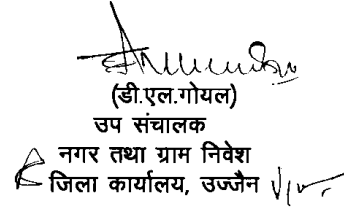 (डी.एल.गोयल)
उप संचालक
नगर तथा ग्राम निवेश
जिला कार्यालय, उज्जैन